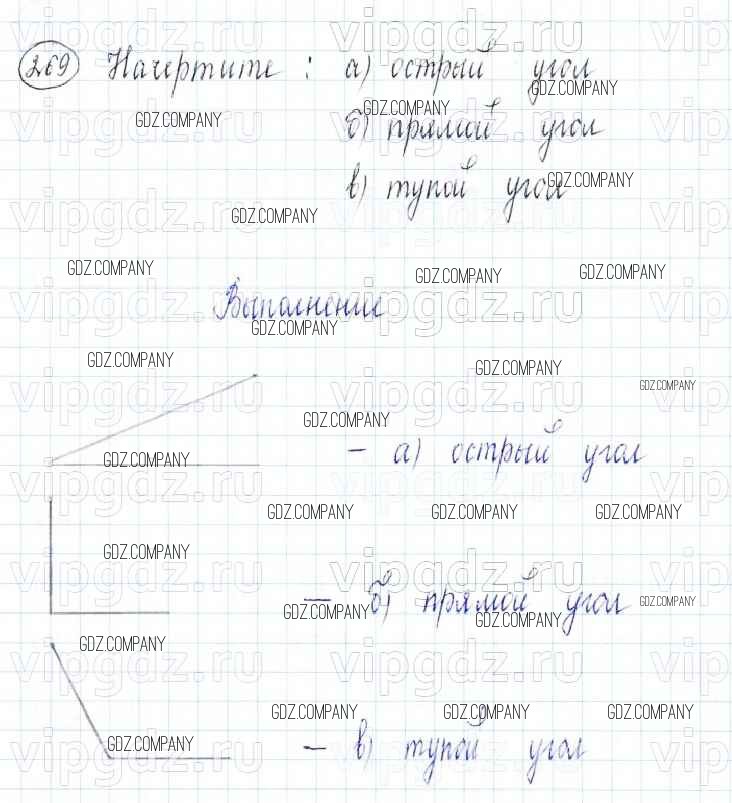 269 Начертите : а) острый угол
б) прямой угол
в) тупой угол
Выполнение
– а) острый угол
– б) прямой угол
– в) тупой угол
GDZ.COMPANY
vipgdz.ru